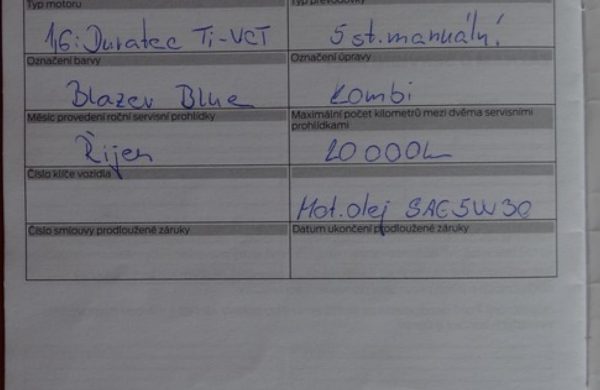 Typ motoru Typ převodovky
1,6i Duratec Ti-VCT 5 st. manuální
Označení barvy Označení úpravy
Blazer Blue Kombi
Měsíc provedení roční servisní prohlídky Maximální počet kilometrů mezi dvěma servisními
prohlídkami
Říjen 20 000km
Číslo klíče vozidla
Mot. olej SAE 5W30
Číslo smlouvy prodloužené záruky Datum ukončení prodloužené záruky